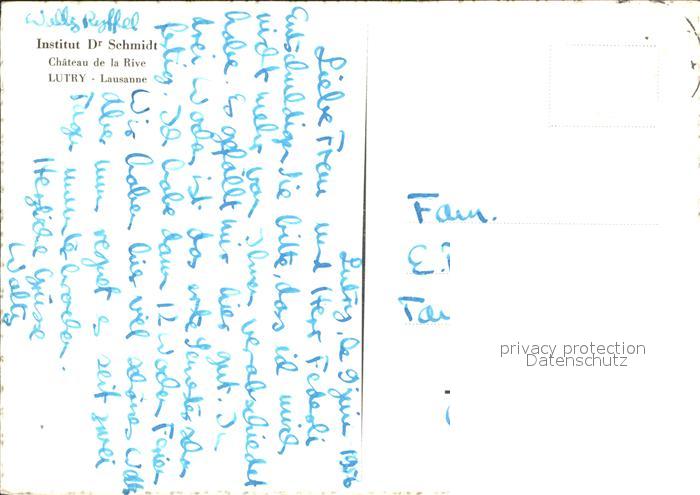 Institut Dr Schmidt
Château de la Rive
LUTRY - Lausanne
Lutry, le 9 juin 1956
Liebe Frau und Herr
Entschuldigen Sie bitte, das ich mich
nicht mehr von Ihnen verabschiedet
habe. Es gefällt mir hier gut. In
drei Wochen ist das erste schon
fertig. Ich habe dann 12 Wochen Ferien
Wir haben hier viel schönes
Aber nun regnet es seit zwei
Tage ununterbrochen.
Herzliche Grüsse
Fam.
E.
privacy protection
Datenschutz